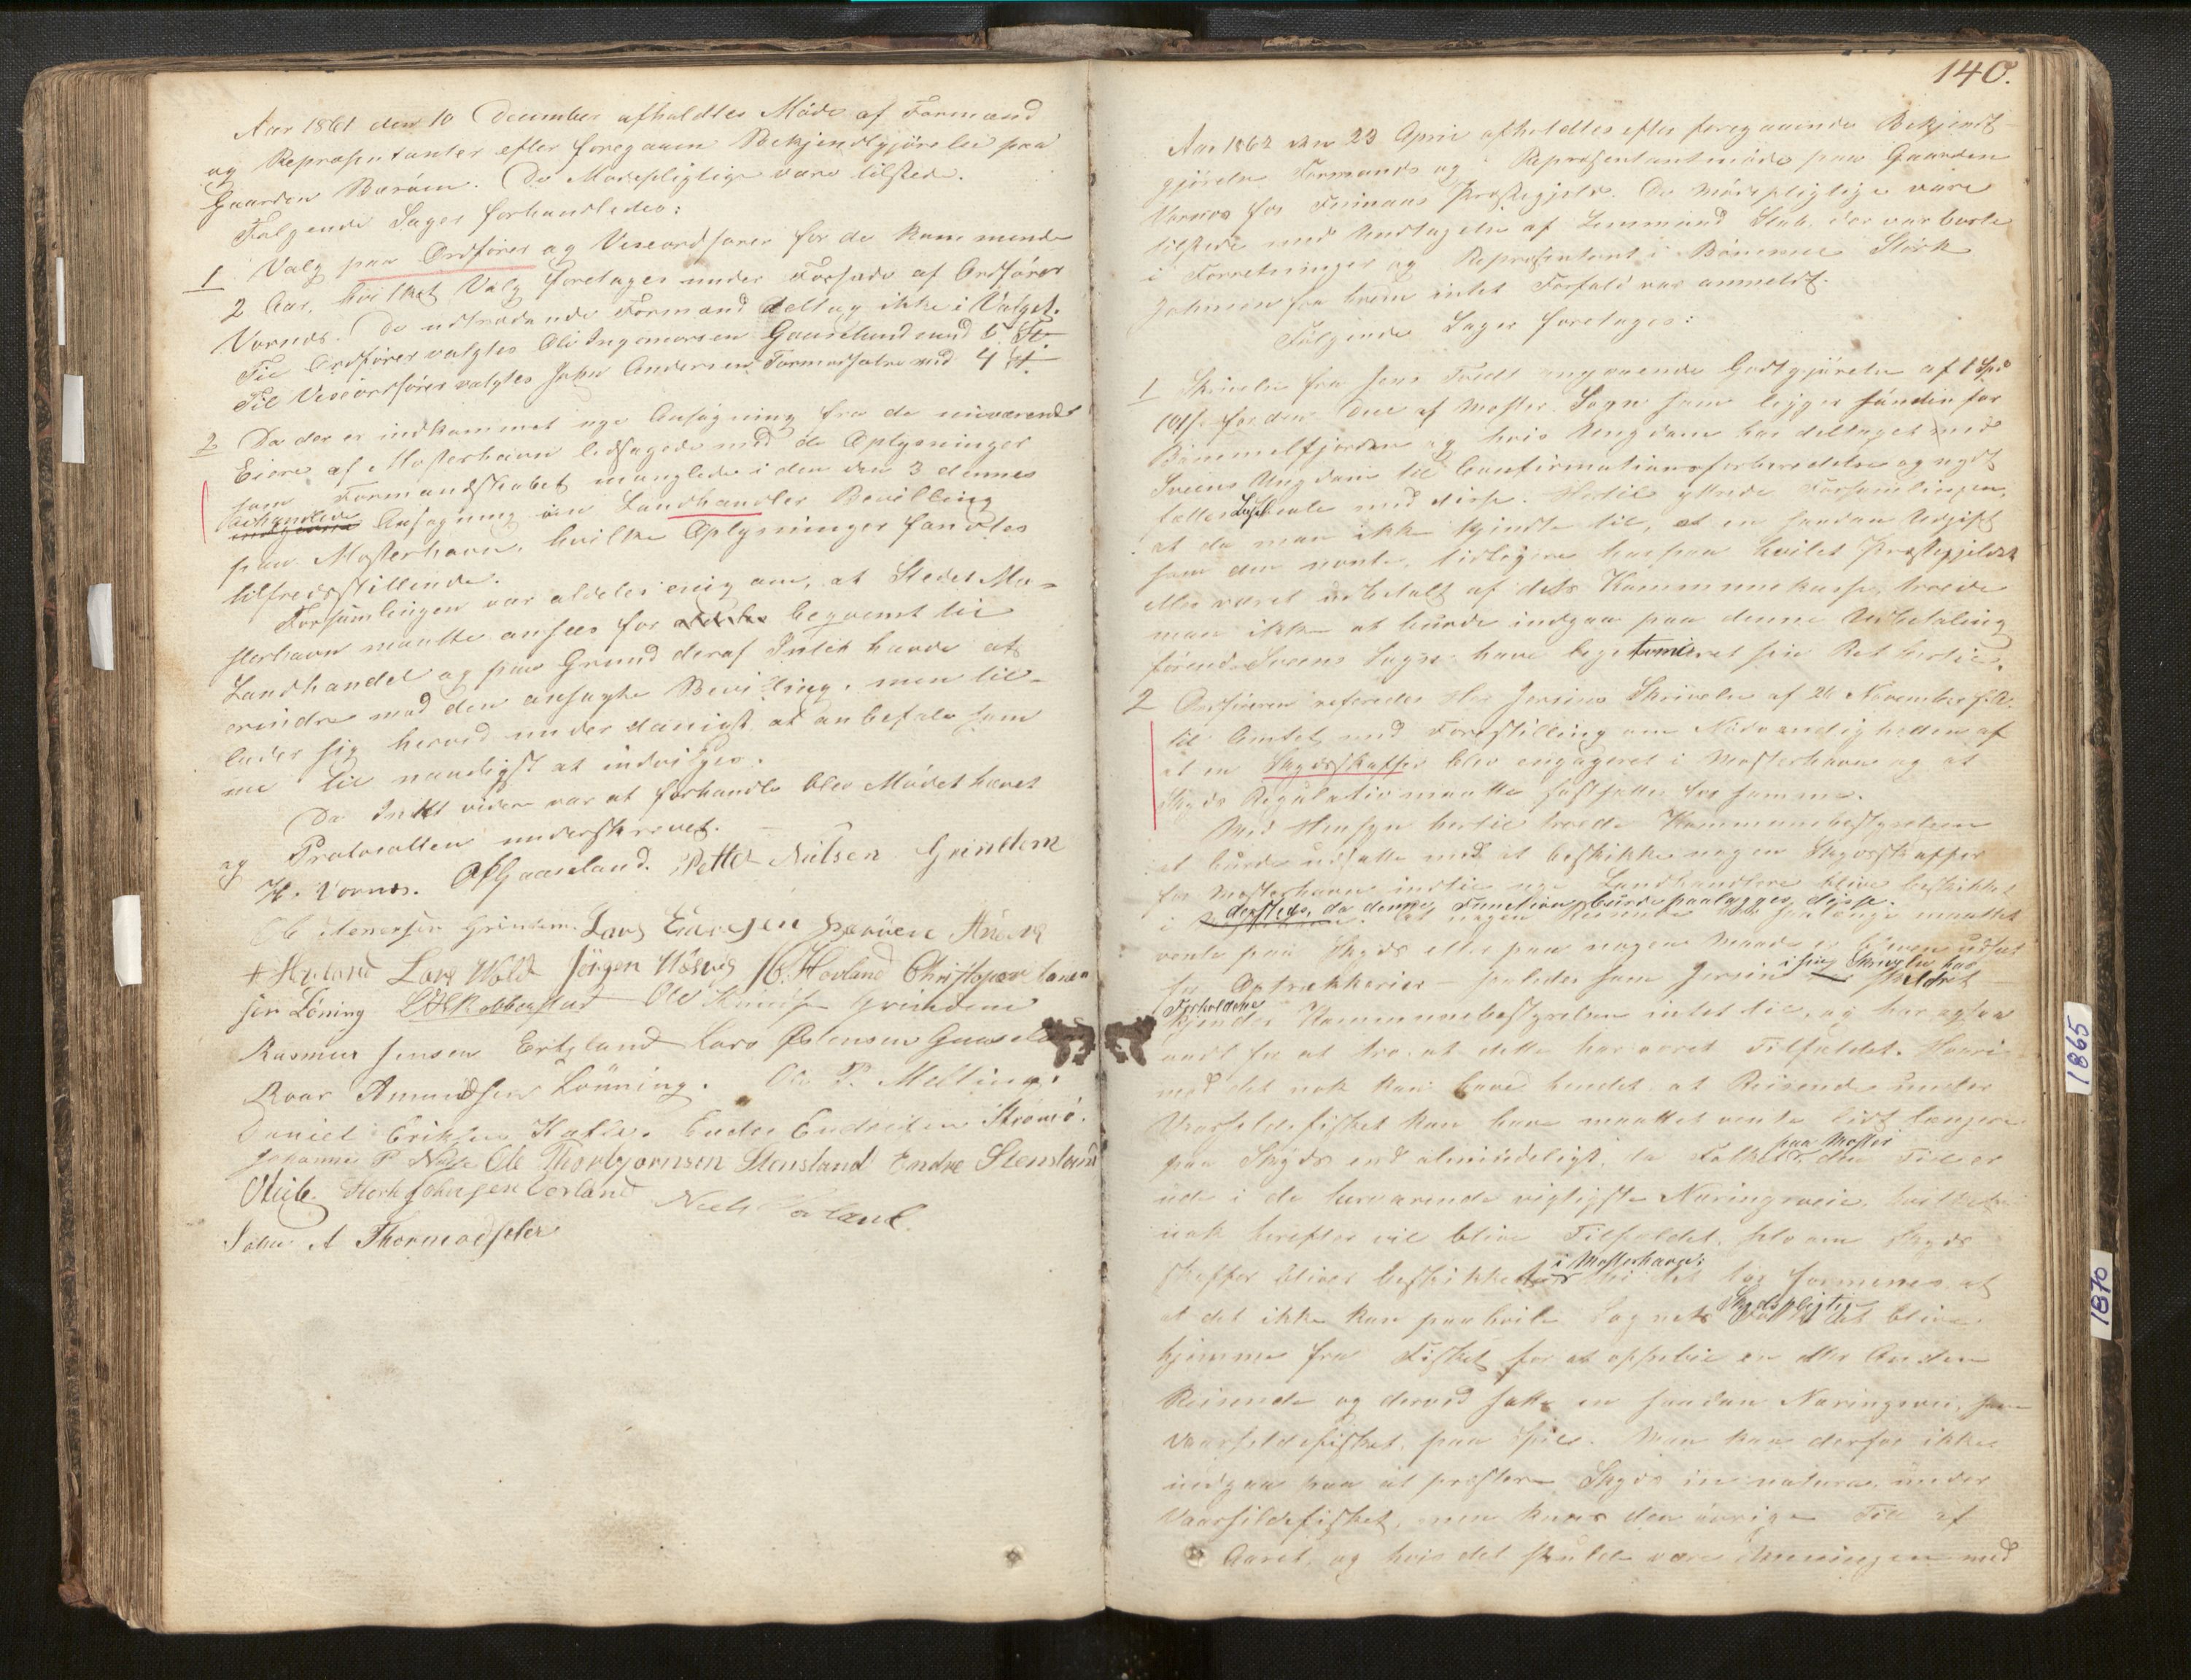 Aar 1861 den 10 December afholdtes Möde af Formænd
og Repræsentanter efter foregaaen Bekjendtgjörelse paa
Gaarden Beröen. De Modepligtige vare tilstede.
Følgende Sager forhandledes:
1 Valg paa Ordförer og Viseordförer for de kommende
2 Aar, hvilket Valg foretages under Forsæde af Ordförer
Vornæs. De udtrædende Formænd deltog ikke i Valget.
Til Ordförer valgtes Ole Ingemarsen Gaaseland med 5 St.
Til Viseordförer valgtes John Andersen Tormodsæter med 4 St.
2 Da der er indkommet nye Ansøgning fra de nuværende
Eiere af Mosterhavn ledsagede med de Oplysninger
som Formandskabet manglede i den den 3 dennes
behandlede Ansøgning om Landhandler Bevilling
paa Mosterhavn, hvilke Oplysninger fandtes
tilfredsstillende.
Forsamlingen var aldeles enig om, at Stedet Mo-
sterhavn maatte ansees for beqvemt til
Landhandel og paa Grund deraf Intet havde at
erindre mod den ansøgte Bevilling, men til-
lader sig herved underdanigst at anbefale samme
til naadigst at indvilges.
Da Intet videre var at forhandle blev Mödet hævet
og Protocollen underskrevet.
H. Vornæs. O I Gaaseland. Petter Nielsen Grindem
Ole Grindem. Lars Beröen
Hovland Lars Wold Jörgen Hovland Christopher Lar
sen Löning Ole Grindem
Rasmus Jensen Eriksland Lars Östensen Gaasel
Roar Amundsen Lönning. Ole P. Melling.
Daniel Eriksen Endre Endresen Strömö.
Johannes P. Ole Thorbjornsen Stensland Endre Stensland
Niels
John A Thormodsæter
140.
Aar 1862 den 23 April afholdtes efter foregaaende Bekjendt-
gjörelse Formands og Repræsentantmöde paa Gaarden
Vornæs for Finnaas Præstegjeld. De mödepligtige vare
tilstede med Undtagelse af Lensmand der var borte
i Forretninger og Repræsentant i Bömmel Störk
Johnsen fra hvem intet Forfald var anmeldt.
Fölgende Sager foretoges:
1 Skrivelse fra Jens angaaende Godtgjörelse af 1 Spd
for den Deel af Moster Sogn som ligger sönden for
Bömmelfjorden og hvis Ungdom har deltaget med
Sveens Ungdom til Confirmationsforberedelse og nydt
med disse. Hertil yttrede Forsamlingen,
at da man ikke kjendte til, at en saadan Udgift
som den nævnte tidligere har paa hvilet Præstegjeldet
eller været udbetalt af dets Kommunekasse troede
man ikke at burde indgaa paa denne Udbetaling
förend Sveens Sogn have legitimeret sin Ret hertil.
2 Ordföreren refererede Hr Jersins Skrivelse af 26 November f.A.
til Amtet med Forestilling om Nödvendigheden af
at en Skydsskaffer blev engageret i Mosterhavn og at
Skyds Regulativ maatte fastsættes for samme.
Med Hensyn hertil troede Kommunebestyrelsen
at burde udsætte med at beskikke nogen Skydsskaffer
for Mosterhavn indtil nye Landhandlere blive beskikket
dersteds, da denne Function burde paalægges disse.
i At nogen Reisende har saalænge maattet
vente paa Skyds eller paa nogen Maade er bleven udsat
for Optrækkerier – saaledes som Jersin i sin Skrivelse har skildret –
Forholdene
kjender Kommunebestyrelsen intet til, og har ogsaa
ondt for at tro, at dette har været Tilfældet. Hvori-
mod det nok kan have hendet at Reisende under
Vaarsildefisket kan have maattet vente lidt længere
paa Skyds end almindeligt, da Folket paa Moster den Tid er
ude i de herværende vigtigste Næringsveie, hvilket
nok herefter vil blive Tilfældet, selv om Skyds
skaffer bliver beskikket i Mosterhavn; formenes at
at det ikke kan paahvile Sognets Skydspligtige at blive
hjemme fra Fisket for at oppebie en eller Anden
Reisende og derved sætte en saadan Næringsvei, som
Vaarsildefisket, paa Spil. Man kan derfor ikke
indgaa paa at præstere Skyds in natura under
Vaarsildefisket, men kuns den övrige Tid af
Aaret, og hvis det skulde være Meningen med
1865
1870